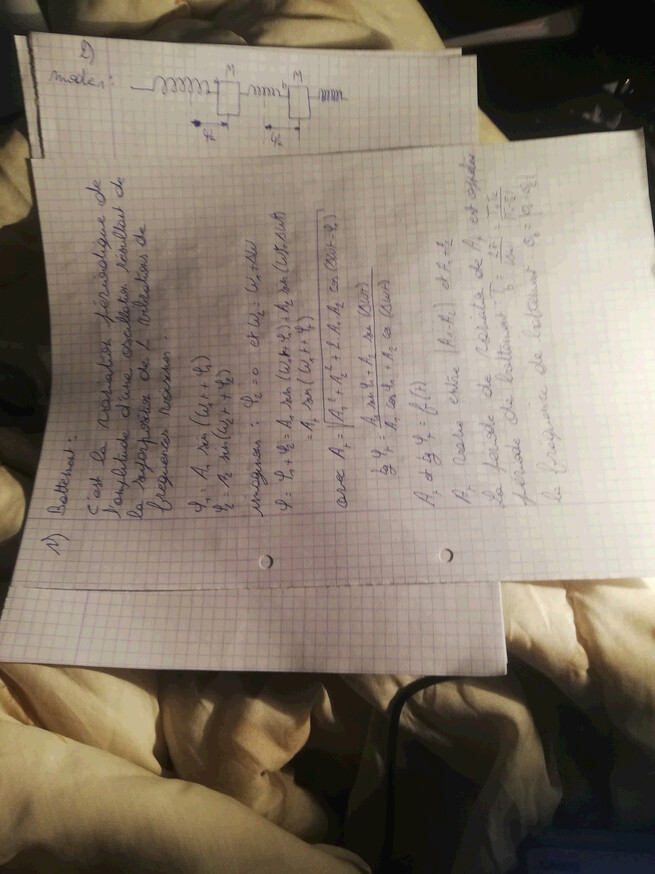 1) Battement:
C'est la variation périodique de
l'amplitude d'une oscillation résultant de
la superposition de 2 vibrations de
fréquences voisines.
φ₁ = A₁ sin (ω₁t + φ₁)
φ₂ = A₂ sin (ω₂t + φ₂)
imaginons : φ₂ = 0 et ω₂ = ω₁ + Δω
φ = φ₁ + φ₂ = A₁ sin (ω₁t + φ₁) + A₂ sin (ω₁t + Δωt)
= Ar sin (ω₁t + φr)
avec Ar = √(A₁² + A₂² + 2 A₁ A₂ cos (Δωt - φ₁))
tg φr = (A₁ sin φ₁ + A₂ sin (Δωt)) / (A₁ cos φ₁ + A₂ cos (Δωt))
Ar et tg φr = f(t)
Ar entre |A₁ - A₂| et A₁ + A₂
la période de Ar est
période de battement : Tb = 2π/Δω = T₁T₂/|T₁-T₂|
la fréquence de battement
2)
modes :
M M